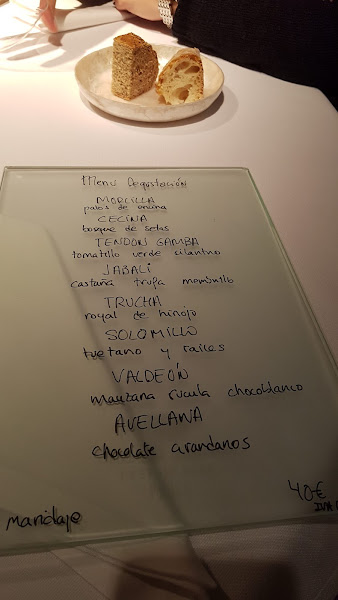 Menu Degustación
MORCILLA
palos de encina
CECINA
bosque de setas
TENDON GAMBA
tomatillo verde cilantro
JABALI
castaña trufa membrillo
TRUCHA
royal de hinojo
SOLOMILLO
tuetano y raices
VALDEÓN
manzana rucula chocoblanco
AVELLANA
chocolate arandanos
40€
maridaje